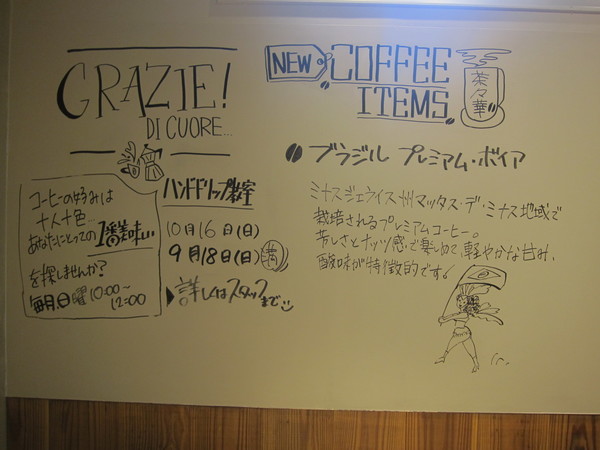 GRAZIE!
DI CUORE...
コーヒーの好みは
十人十色…
あなたにとっての1番美味しい
を探しませんか?
毎月.日曜 10:00~
12:00
ハンドドリップ教室
10月16日(日)
9月18日(日) 満
▶詳しくはスタッフまで
NEW COFFEE
ITEMS
茶々華
ブラジル プレミアム・ボイア
ミナスジェライス州マッタス・デ・ミナス地域で
栽培されるプレミアムコーヒー。
苦しさとナッツ感で楽しめて、軽やかな甘み、
酸味が特徴的です!